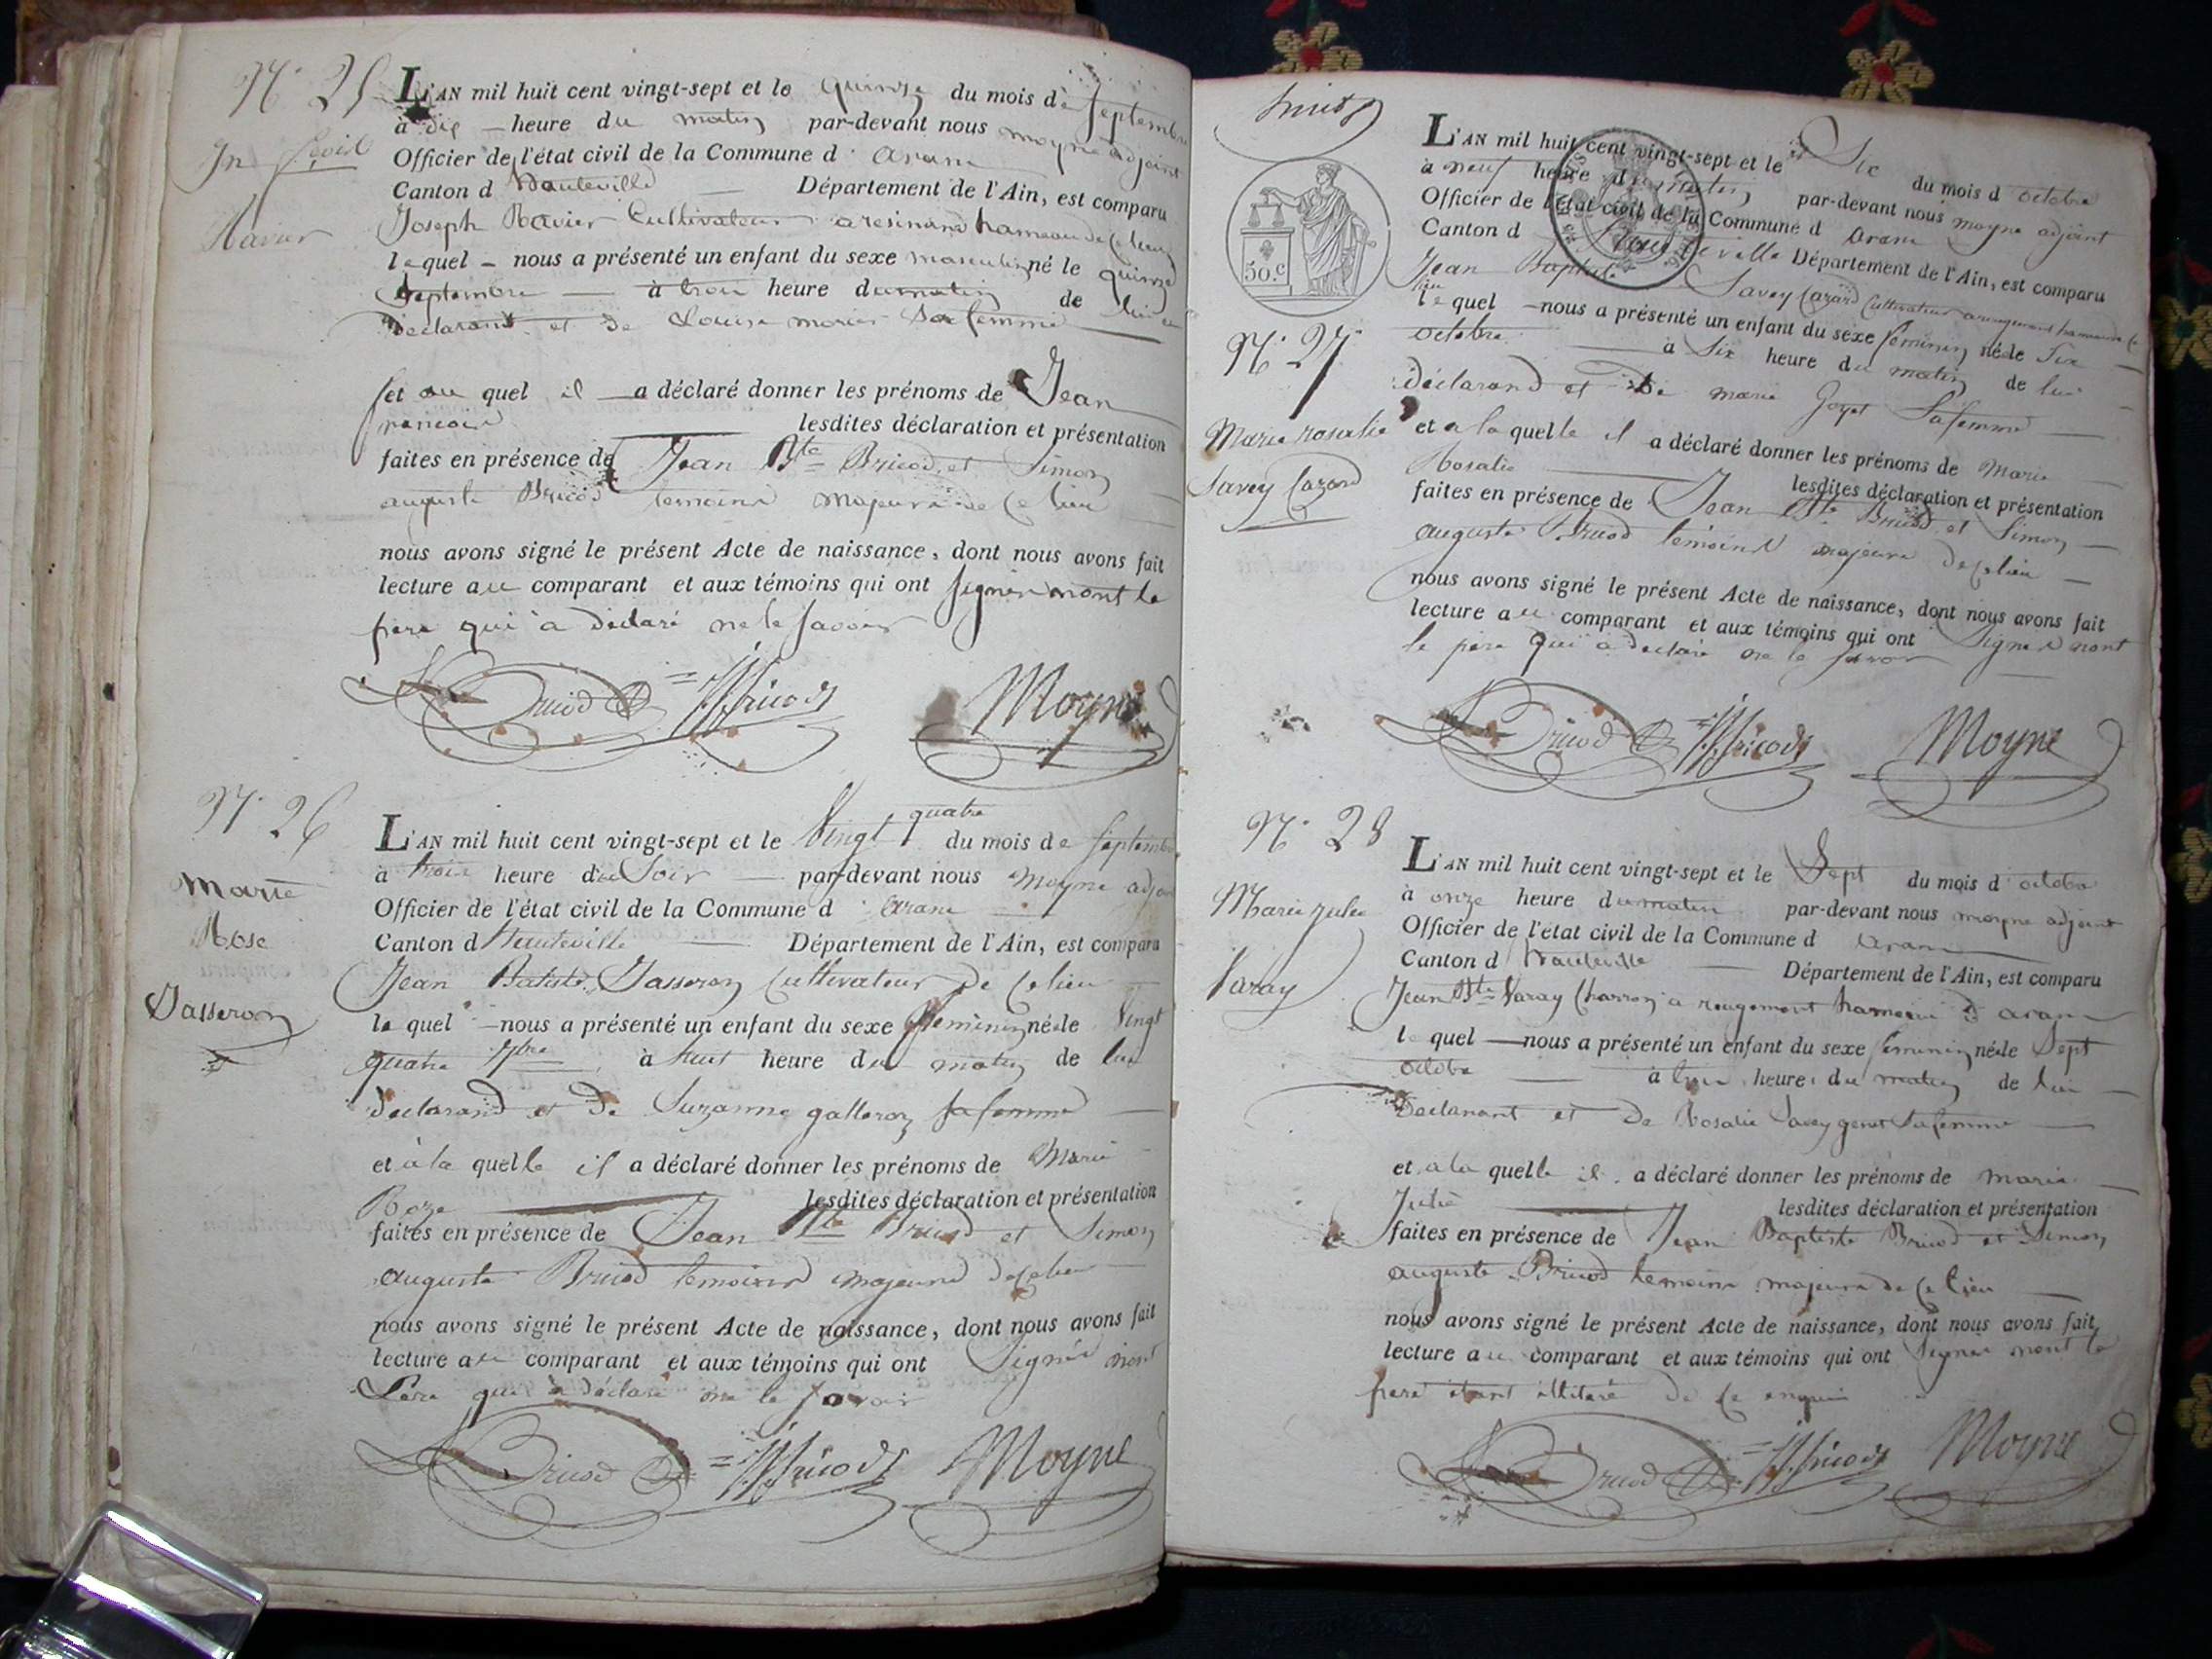 N° 25
Jn
Ravier
L'AN mil huit cent vingt-sept et le quinze du mois de Septembre
à dix heure du matin par-devant nous moyne adjoint
Officier de l'état civil de la Commune d aranc
Canton d hauteville Département de l'Ain, est comparu
Joseph Ravier Cultivateur a resinand hameau de ce lieu
le quel nous a présenté un enfant du sexe masculin né le quinze
Septembre à trois heure du matin de lui
declarand et de Louise Sa femme
et au quel il a déclaré donner les prénoms de Jean
francois lesdites déclaration et présentation
faites en présence de Jean Bte Bricod et Simon
auguste Bricod temoins majeurs de ce lieu
nous avons signé le présent Acte de naissance, dont nous avons fait
lecture au comparant et aux témoins qui ont signés nont le
père qui à déclaré ne le savoir
Bricod Bricod Moyne
N° 26
Marie
Rose
Jasseron
L'AN mil huit cent vingt-sept et le Vingt quatre du mois de Septembre
à trois heure du Soir par-devant nous moyne adjoint
Officier de l'état civil de la Commune d aranc
Canton d hauteville Département de l'Ain, est comparu
Jean Batiste Jasseron Cultivateur de ce lieu
le quel nous a présenté un enfant du sexe feminin née le Vingt
quatre 7bre à huit heure du matin de lui
declarand et de Suzanne galleron sa femme
et à la quelle il a déclaré donner les prénoms de Marie
Roze lesdites déclaration et présentation
faites en présence de Jean Bte Bricod et Simon
auguste Bricod temoins majeurs de ce lieu
nous avons signé le présent Acte de naissance, dont nous avons fait
lecture au comparant et aux témoins qui ont Signés nont
Père qui à déclaré ne le savoir
Bricod Bricod Moyne
50.c
N° 27
Marie rosalie
Savey Cazard
L'AN mil huit cent vingt-sept et le Six du mois d octobre
à neuf heure du matin par-devant nous moyne adjoint
Officier de l'état civil de la Commune d aranc
Canton d hauteville Département de l'Ain, est comparu
Jean Baptiste Savey Cazard Cultivateur a rougemont hameau de ce
lieu
le quel nous a présenté un enfant du sexe feminin née le Six
octobre à Six heure du matin de lui
déclarand et de marie Goyet Sa femme
et a la quelle il a déclaré donner les prénoms de Marie
Rosalie lesdites déclaration et présentation
faites en présence de Jean Bte Bricod et Simon
auguste Bricod témoins majeurs de ce lieu
nous avons signé le présent Acte de naissance, dont nous avons fait
lecture au comparant et aux témoins qui ont Signés nont
le père qui a declaré ne le savoir
Bricod Bricod Moyne
N° 28
Marie julie
Varay
L'AN mil huit cent vingt-sept et le Sept du mois d octobre
à onze heure du matin par-devant nous moyne adjoint
Officier de l'état civil de la Commune d aranc
Canton d hauteville Département de l'Ain, est comparu
Jean Bte Varay Charron a rougemont hameau d aranc
le quel nous a présenté un enfant du sexe feminin née le Sept
octobre à trois heure du matin de lui
declarant et de Rosalie Savey genet Sa femme
et a la quelle il a déclaré donner les prénoms de marie
Julie lesdites déclaration et présentation
faites en présence de Jean Baptiste Bricod et Simon
auguste Bricod temoins majeurs de ce lieu
nous avons signé le présent Acte de naissance, dont nous avons fait
lecture au comparant et aux témoins qui ont Signés nont le
père étant illiteré de ce enquis
Bricod Bricod Moyne